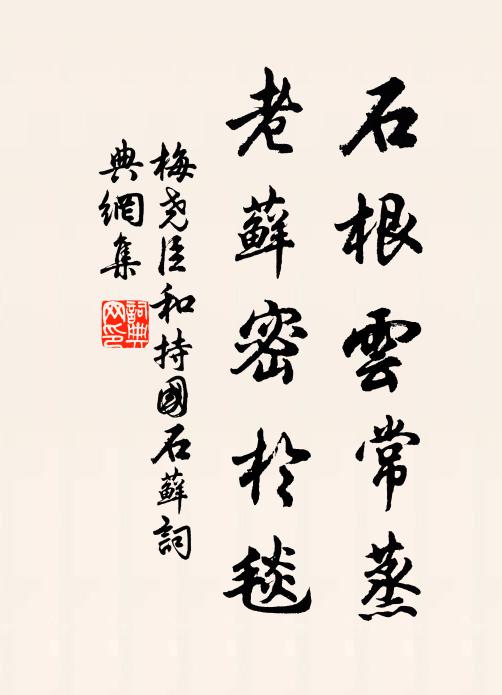 石根雲常蒸
老蘚密於毯
梅堯臣和持國石蘚詞
典網集
詞典
网印